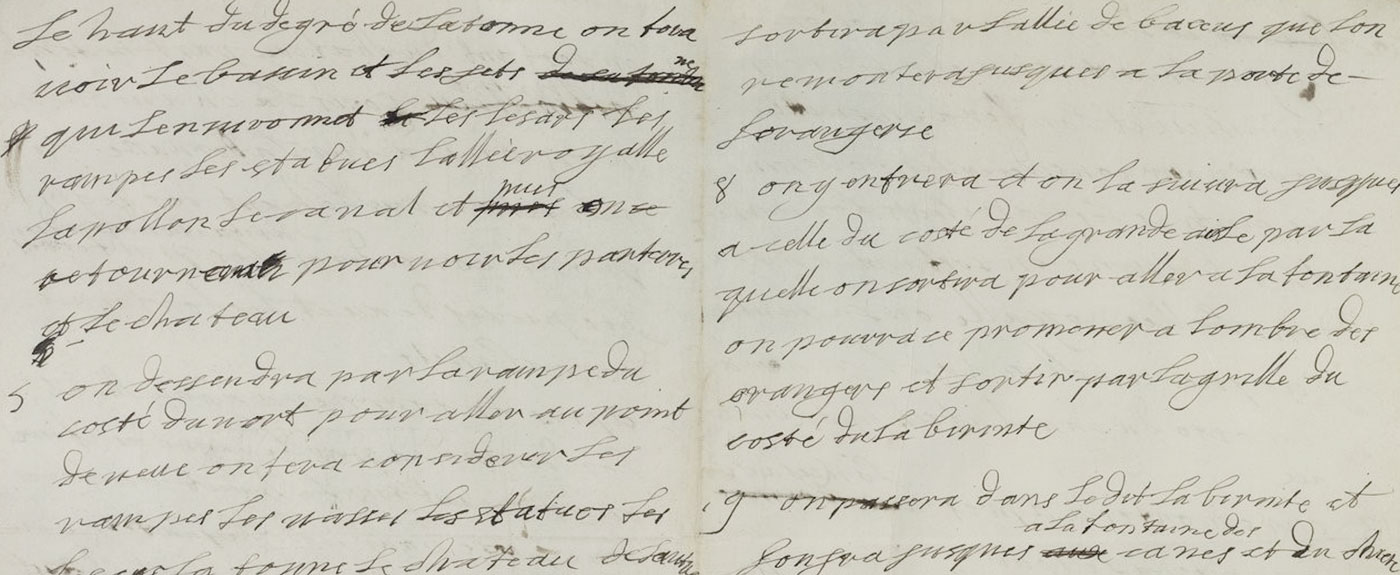 le haut du degré de latonne on fera
voir le bassin et les jets
qui lenvironnet les lesars les
rampes les statues lallée royalle
lapollon le canal et puis
retourner pour voir les parterres
et le chateau
5 on dessendra par la rampe du
costé du nort pour aller au point
de veue on fera considerer les
rampes les vasses les statues les
la tonne le chateau de lautre
sortira par lallée de baccus que lon
remontera jusques a la porte de
lorangerie
8 on y entrera et on la suivra jusques
a celle du costé de la grande aisle par la
quelle on sortira pour aller a la fontaine
on pourra ce promener a lombre des
orangers et sortir par la grille du
costé du labirinte
9 on passera dans le dit labirinte et
a la fontaine des
jusques canes et du chien